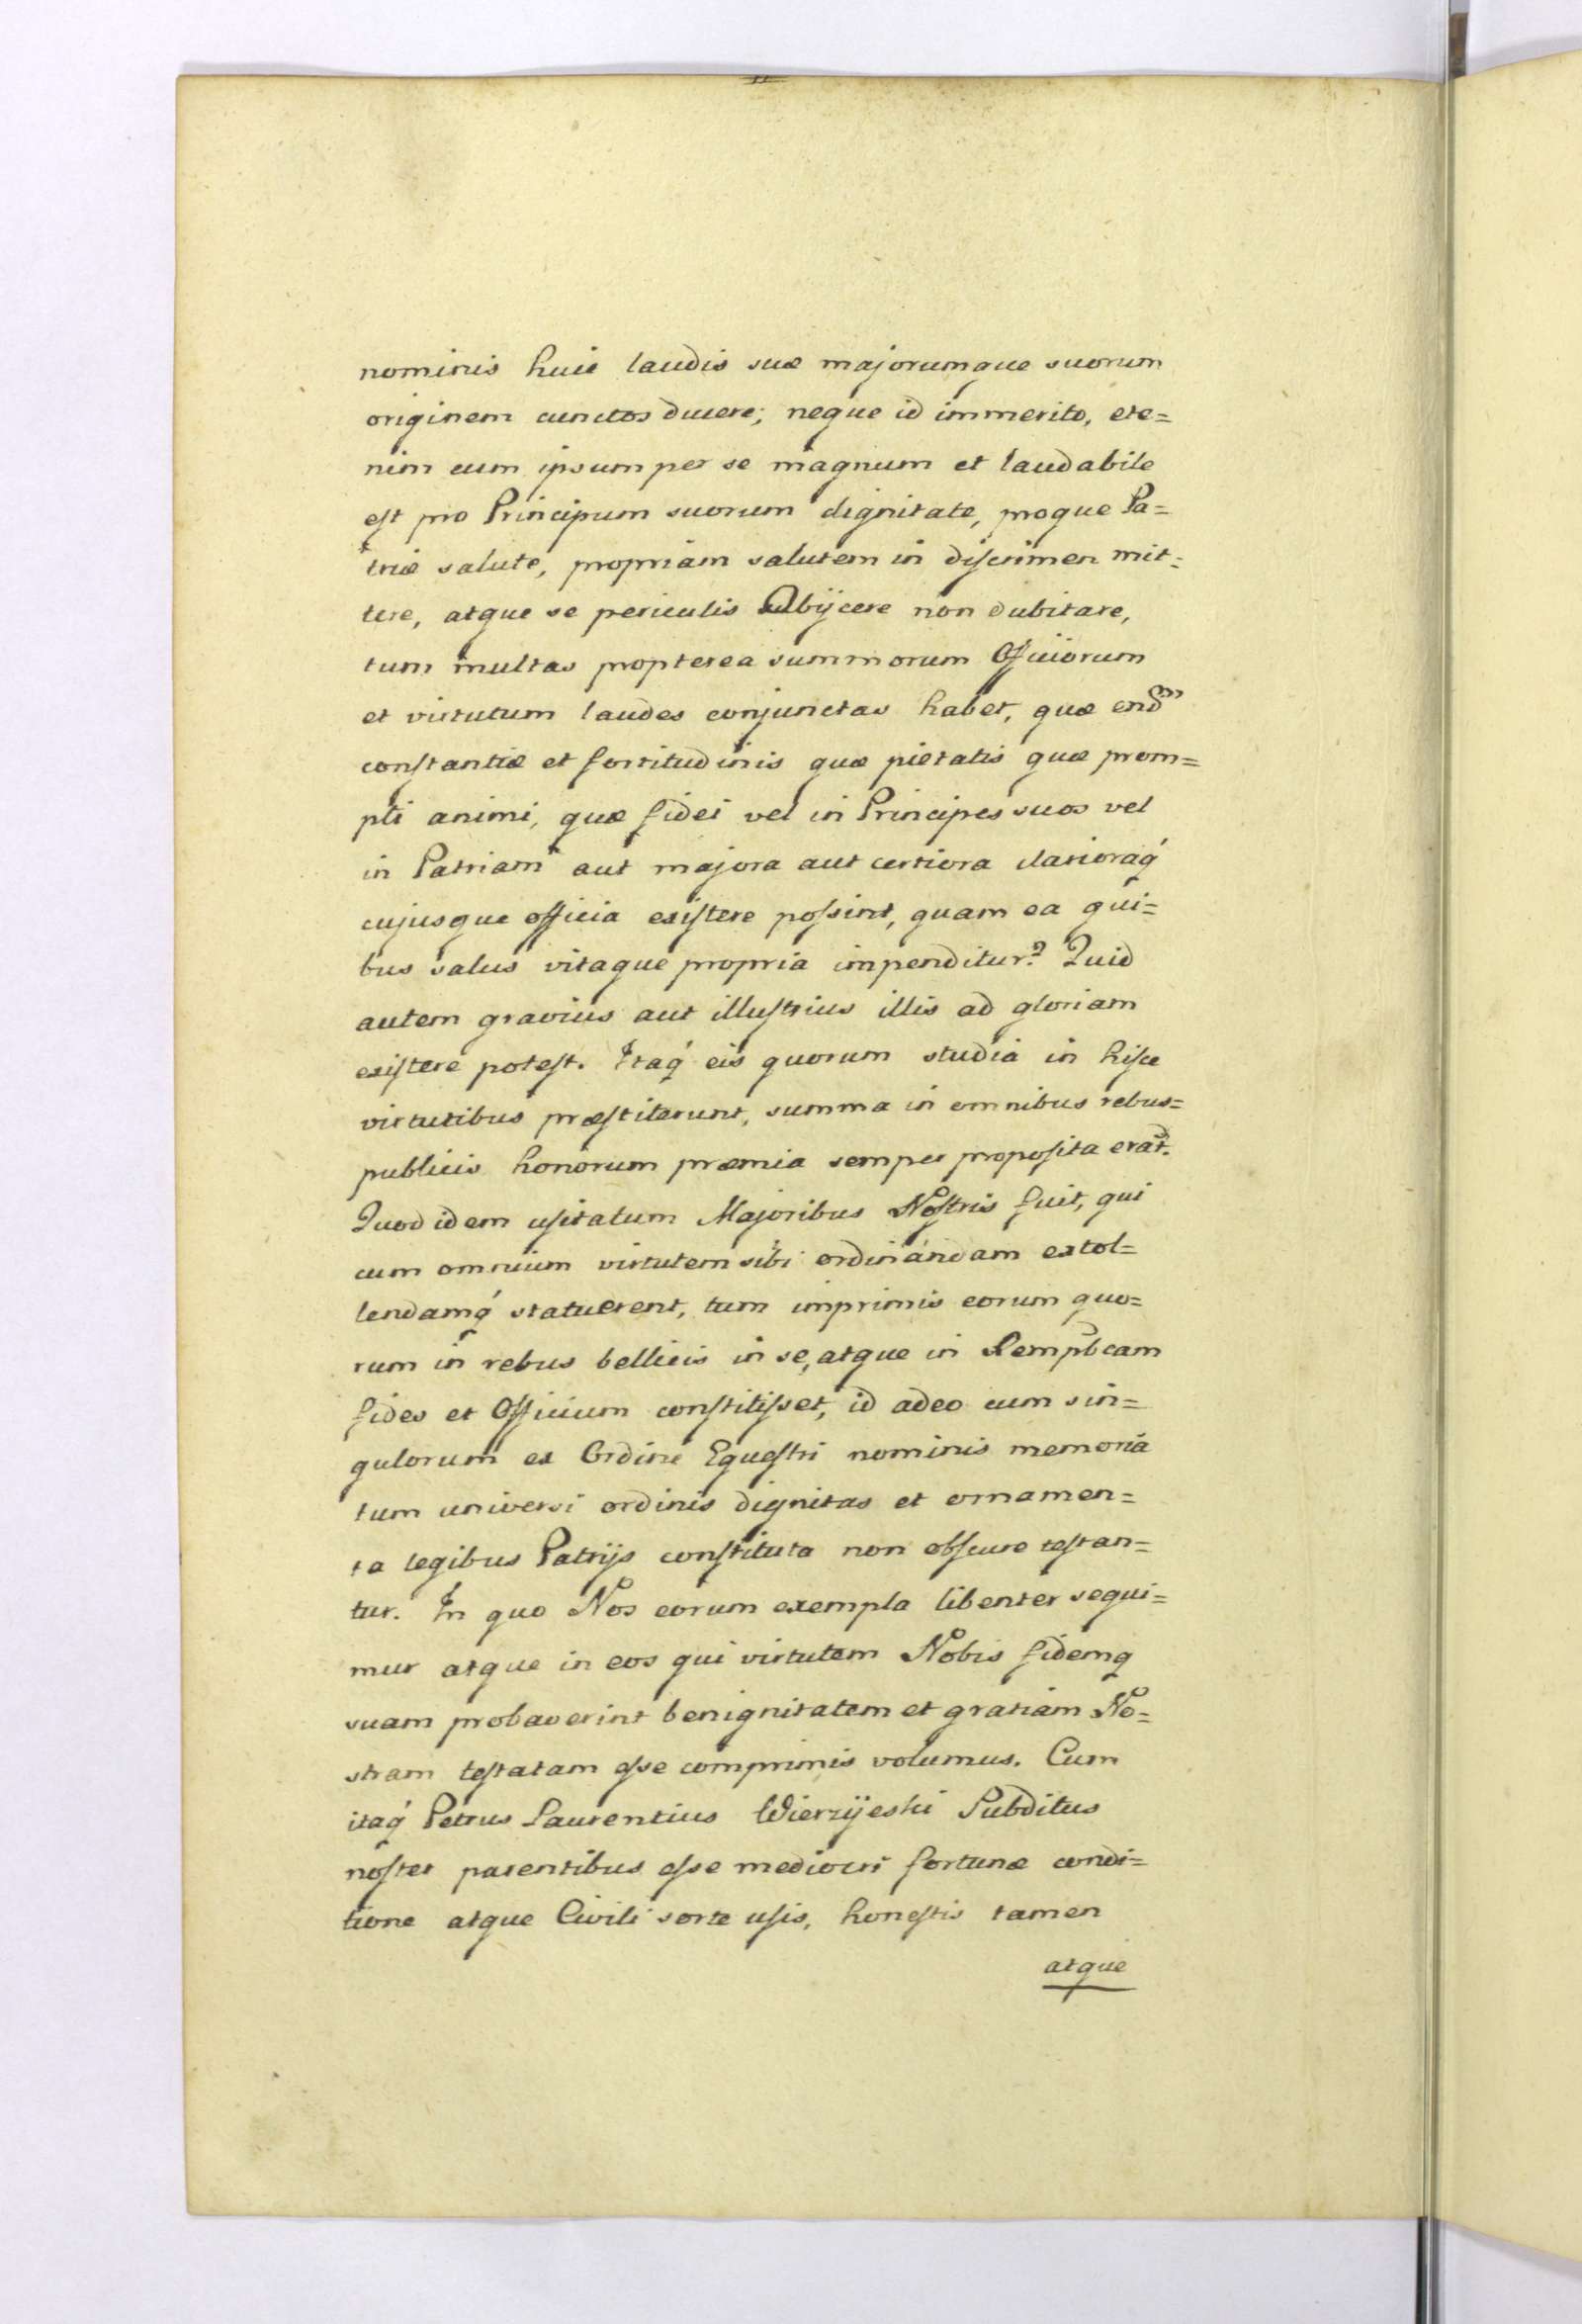 nominis huic laudis suæ majorumque suorum
originem cunctos ducere; neque id immerito, ete=
nim cum ipsum per se magnum et laudabile
est pro Principum suorum dignitate, proque Pa=
triæ salute, propriam salutem in discrimen mit=
tere, atque se periculis subijcere non dubitare,
tum multas propterea summorum Officiorum
et virtutum laudes conjunctas habet, quæ
constantiæ et fortitudinis quæ pietatis quæ prom=
pti animi, quæ fidei vel in Principes suos vel
in Patriam aut majora aut certiora clarioraq́
cujusque officia existere possint, quam ea qui=
bus salus vitaque propria impenditur? Quid
autem gravius aut illustrius illis ad gloriam
existere potest. Itaq́ eis quorum studia in hisce
virtutibus præstiterunt, summa in omnibus rebus=
publicis honorum præmia semper proposita erat.
Quod idem usitatum Majoribus Nostris fuit, qui
cum omnium virtutem sibi ordinandam extol=
lendamq́ statuerent, tum imprimis eorum quo=
rum in rebus bellicis in se, atque in Rempbcam
fides et Officium constitisset, id adeo cum sin=
gulorum ex Ordine Equestri nominis memoria
tum universi ordinis dignitas et ornamen=
ta legibus Patrijs constituta non obscure testan=
tur. In quo Nos eorum exempla libenter sequi=
mur atque in eos qui virtutem Nobis fidemq
suam probaverint benignitatem et gratiam No=
stram testatam esse comprimis volumus. Cum
itaq́ Petrus Laurentius Wierzijeski Subditus
noster parentibus esse mediocri fortunæ condi=
tione atque Civili sorte usis, honestis tamen
atque